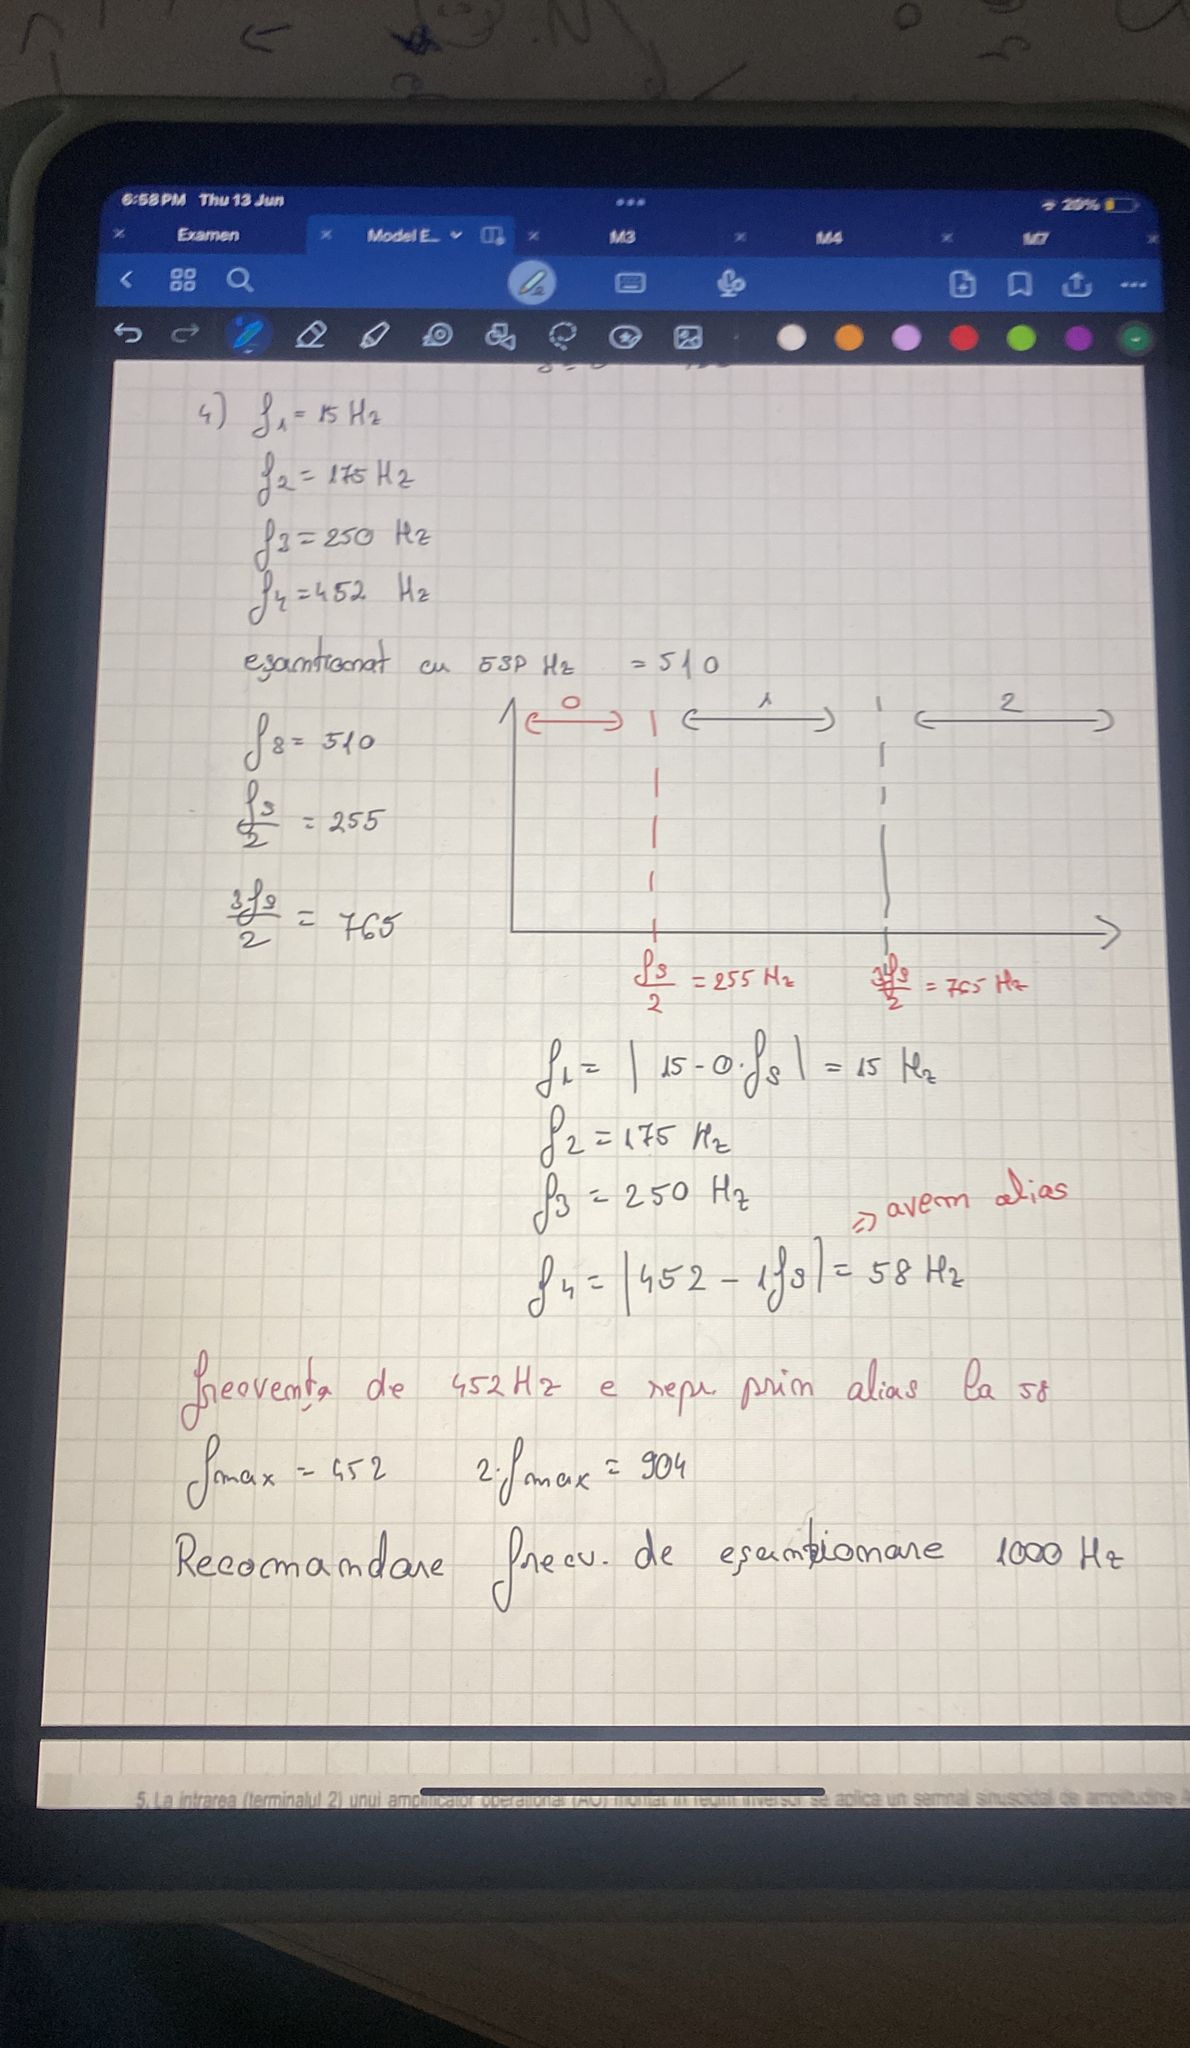 6:58 PM Thu 13 Jun
29%
Examen
Model E...
M3
M4
M7
4) f1 = 15 Hz
f2 = 175 Hz
f3 = 250 Hz
f4 = 452 Hz
eșantionat cu 53P Hz = 510
0 1 2
fs = 510
fs/2 = 255
3fs/2 = 765
fs/2 = 255 Hz
3fs/2 = 765 Hz
f1 = | 15 - 0·fs | = 15 Hz
f2 = 175 Hz
f3 = 250 Hz
=> avem alias
f4 = |452 - 1fs| = 58 Hz
frecvența de 452 Hz e repr. prin alias la 58
fmax = 452 2·fmax = 904
Recomandare frecv. de eșantionare 1000 Hz
5. La intrarea (terminalul 2) unui amplificator operational (AO) montat in regim inversor se aplica un semnal sinusoidal de amplitudine